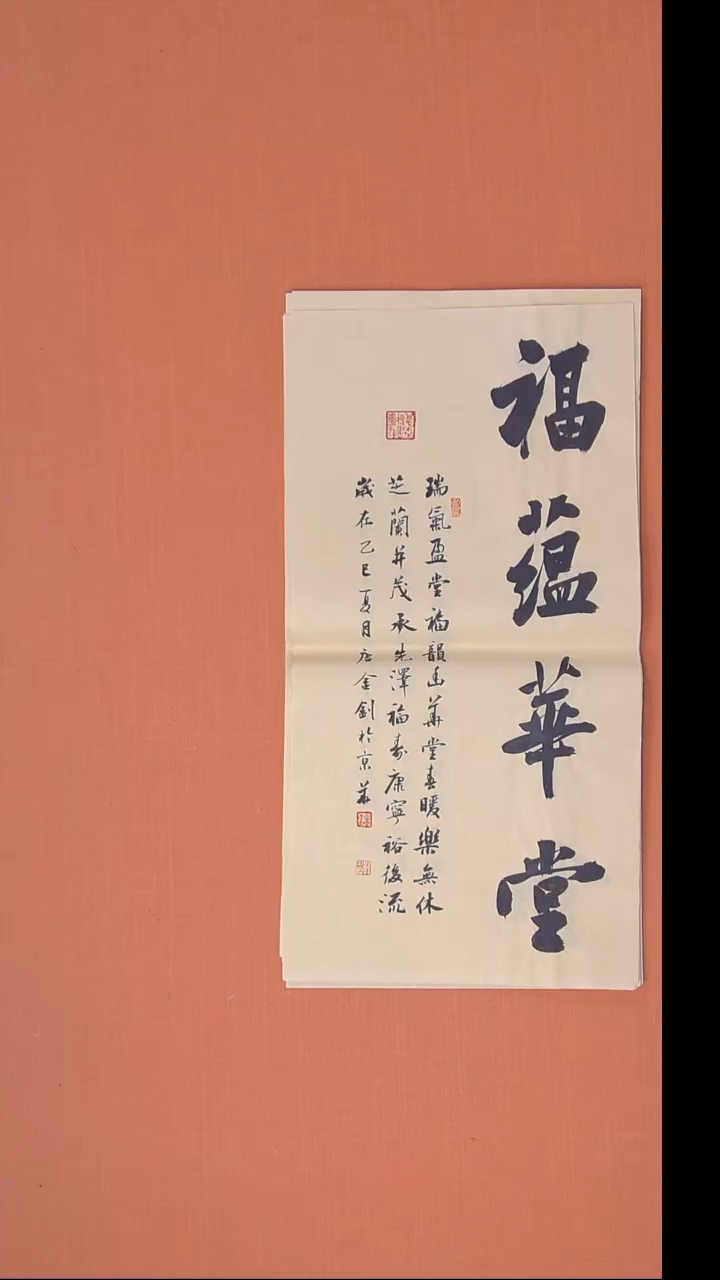 福蕴華堂
瑞氣盈堂福韻幽華堂春暖樂無休
芝蘭并茂承先澤福壽康寧裕後流
歲在乙巳夏月左金釗於京華